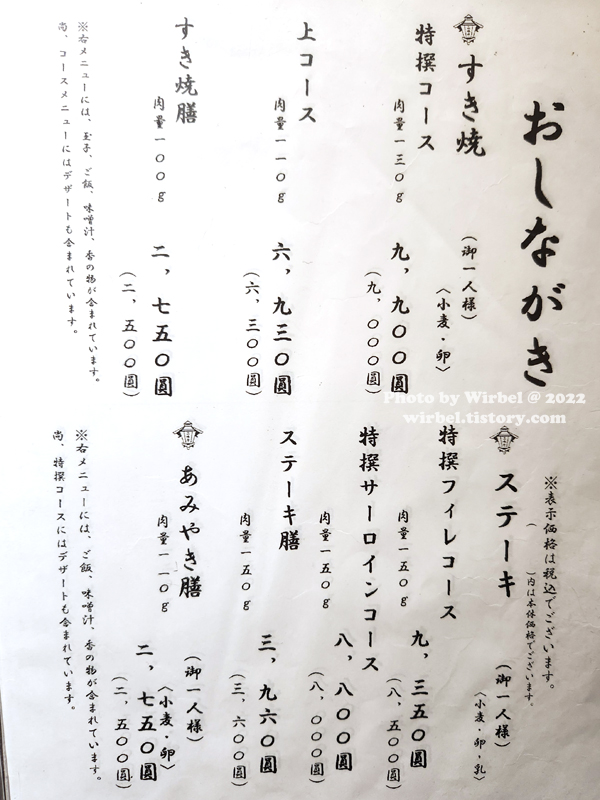 おしながき
※表示価格は税込でございます。
( )内は本体価格でございます。
すき焼
(御一人様)
〈小麦・卵〉
特撰コース
肉量一三〇g
九,九〇〇圓
(九,〇〇〇圓)
上コース
肉量一一〇g
六,九三〇圓
(六,三〇〇圓)
すき焼膳
肉量一〇〇g
二,七五〇圓
(二,五〇〇圓)
※右メニューには、玉子、ご飯、味噌汁、香の物が含まれています。
尚、コースメニューにはデザートも含まれています。
ステーキ
(御一人様)
〈小麦・卵・乳〉
特撰フィレコース
肉量一五〇g
九,三五〇圓
(八,五〇〇圓)
特撰サーロインコース
肉量一五〇g
八,八〇〇圓
(八,〇〇〇圓)
ステーキ膳
肉量一五〇g
三,九六〇圓
(三,六〇〇圓)
あみやき膳
(御一人様)
〈小麦・卵〉
肉量一一〇g
二,七五〇圓
(二,五〇〇圓)
※右メニューには、ご飯、味噌汁、香の物が含まれています。
尚、特撰コースにはデザートも含まれています。
Photo by Wirbel @ 2022
wirbel.tistory.com